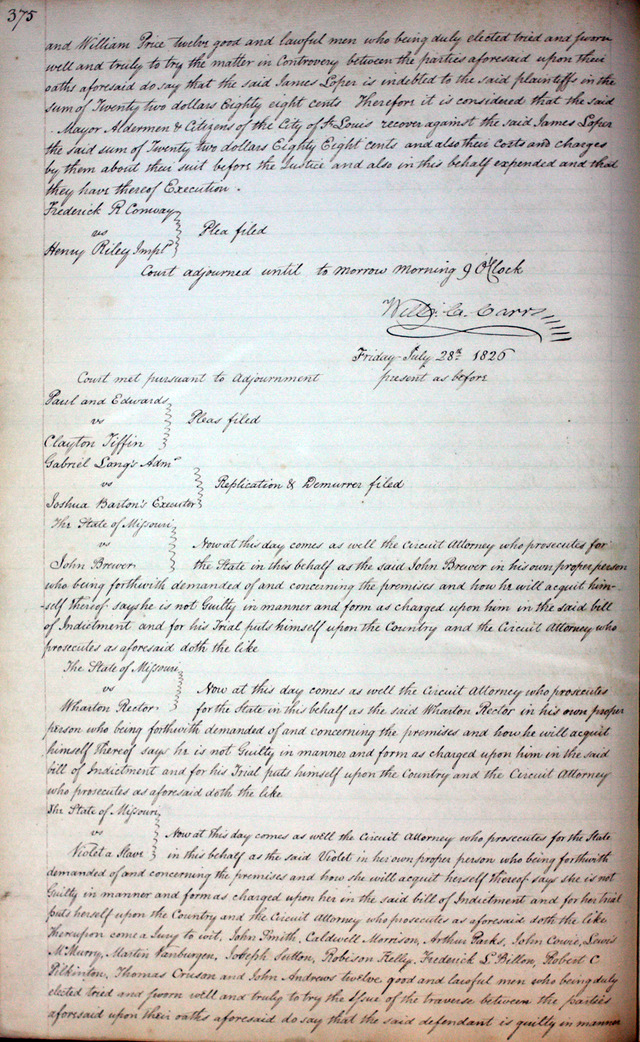 375
and William Price twelve good and lawful men who being duly elected tried and sworn
well and truly to try the matter in Controversy between the parties aforesaid upon their
oaths aforesaid do say that the said James Loper is indebted to the said plaintiffs in the
sum of Twenty two dollars Eighty eight cents Therefore it is considered that the said
Mayor Aldermen & Citizens of the City of St Louis recover against the said James Loper
the said sum of Twenty two dollars Eighty Eight cents and also their costs and charges
by them about their suit before the Justice and also in this behalf expended and that
they have thereof Execution.
Frederick R Conway
vs
Plea filed
Henry Riley Impl
Court adjourned until to morrow morning 9 O'Clock
Will. C. Carr
Friday July 28th 1826
Court met pursuant to Adjournment present as before
Paul and Edwards
vs
Pleas filed
Clayton Tiffin
Gabriel Long's Admr
vs
Replication & Demurrer filed
Joshua Barton's Executor
The State of Missouri
vs
Now at this day comes as well the Circuit Attorney who prosecutes for
John Brewer the State in this behalf as the said John Brewer in his own proper person
who being forthwith demanded of and concerning the premises and how he will acquit him-
-self thereof says he is not Guilty in manner and form as charged upon him in the said bill
of Indictment and for his Trial puts himself upon the Country and the Circuit Attorney who
prosecutes as aforesaid doth the like
The State of Missouri
vs
Now at this day comes as well the Circuit Attorney who prosecutes
Wharton Rector for the State in this behalf as the said Wharton Rector in his own proper
person who being forthwith demanded of and concerning the premises and how he will acquit
himself thereof says he is not Guilty in manner and form as charged upon him in the said
bill of Indictment and for his Trial puts himself upon the Country and the Circuit Attorney
who prosecutes as aforesaid doth the like
The State of Missouri
vs
Now at this day comes as well the Circuit Attorney who prosecutes for the State
Violet a Slave in this behalf as the said Violet in her own proper person who being forthwith
demanded of and concerning the premises and how she will acquit herself thereof says she is not
Guilty in manner and form as charged upon her in the said bill of Indictment and for her trial
puts herself upon the Country and the Circuit Attorney who prosecutes as aforesaid doth the like
Thereupon come a Jury to wit, John Smith, Caldwell Morrison, Arthur Parks, John Cowie, Lewis
McMurry, Martin Vanburgen, Joseph Sutton, Robeson Kelly, Frederick L Billon, Robert C
Pilkinton, Thomas Cruson and John Andrews twelve good and lawful men who being duly
elected tried and sworn well and truly to try the Issue of the traverse between the parties
aforesaid upon their oaths aforesaid do say that the said defendant is guilty in manner